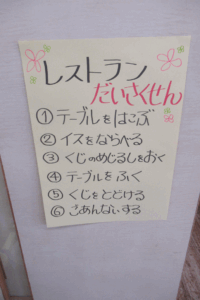 レストラン
だいさくせん
①テーブルをはこぶ
②イスをならべる
③くじのめじるしをおく
④テーブルをふく
⑤くじをとどける
⑥ごあんないする